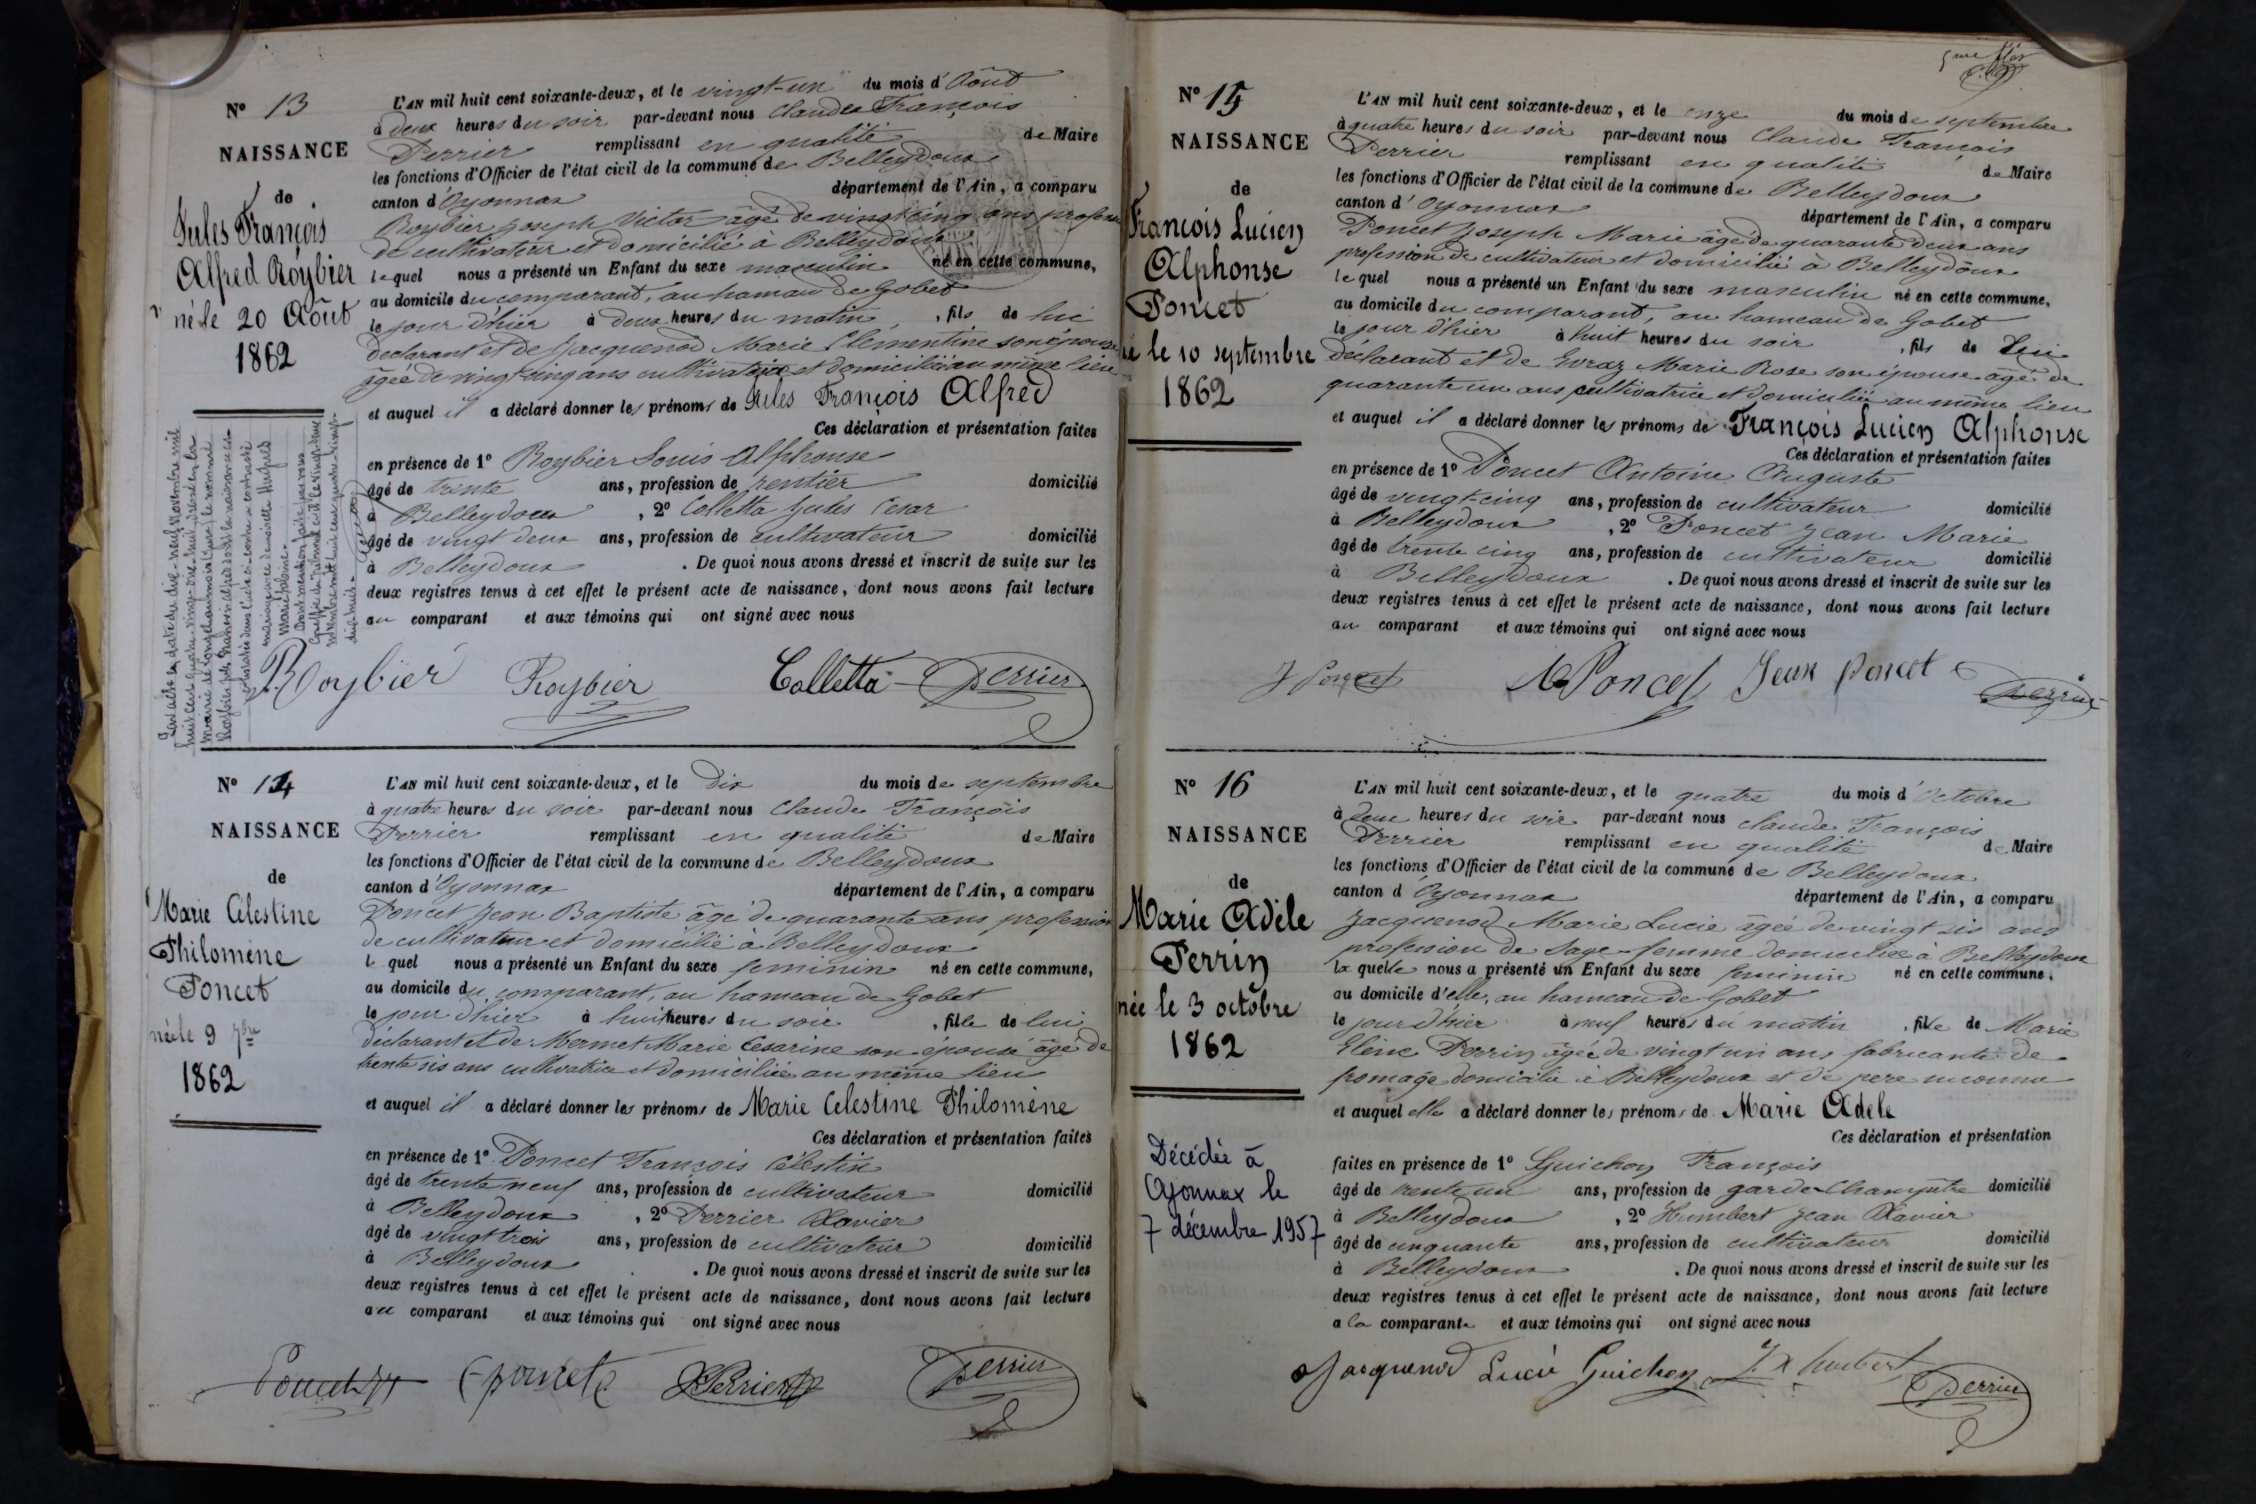 N° 13
NAISSANCE
de
Jules François
Alfred Roybier
né le 20 Août
1862
L'AN mil huit cent soixante-deux, et le vingt-un du mois d'Août
à deux heures du soir par-devant nous Claude François
Perrier remplissant en qualité de Maire
les fonctions d'Officier de l'état civil de la commune de Belleydoux
canton d'Oyonnax département de l'Ain, a comparu
Roybier Joseph Victor âgé de vingt cinq ans profession
de cultivateur et domicilié à Belleydoux
lequel nous a présenté un Enfant du sexe masculin né en cette commune,
au domicile du comparant, au hameau de Gobet
le jour d'hier à deux heures du matin, fils de lui
déclarant et de Jacquenod Marie Clémentine son épouse
âgée de vingt cinq ans cultivatrice et domiciliée au même lieu
et auquel il a déclaré donner les prénoms de Jules François Alfred
Ces déclaration et présentation faites
en présence de 1° Roybier Louis Alphonse
âgé de trente ans, profession de rentier domicilié
à Belleydoux, 2° Colletta Jules Cesar
âgé de vingt deux ans, profession de cultivateur domicilié
à Belleydoux. De quoi nous avons dressé et inscrit de suite sur les
deux registres tenus à cet effet le présent acte de naissance, dont nous avons fait lecture
au comparant et aux témoins qui ont signé avec nous
Roybier Roybier Colletta Perrier
Par acte en date du dix-neuf novembre mil
huit cent quatre-vingt-
mariage avec demoiselle Hugues
Marie
N° 14
NAISSANCE
de
Marie Célestine
Philomène
Poncet
née le 9 7bre
1862
L'AN mil huit cent soixante-deux, et le dix du mois de septembre
à quatre heures du soir par-devant nous Claude François
Perrier remplissant en qualité de Maire
les fonctions d'Officier de l'état civil de la commune de Belleydoux
canton d'Oyonnax département de l'Ain, a comparu
Poncet Jean Baptiste âgé de quarante ans profession
de cultivateur et domicilié à Belleydoux
lequel nous a présenté un Enfant du sexe féminin né en cette commune,
au domicile du comparant, au hameau de Gobet
le jour d'hier à huit heures du soir, fille de lui
déclarant et de Mermet Marie Césarine son épouse âgé de
trente six ans cultivatrice et domiciliée au même lieu
et auquel il a déclaré donner les prénoms de Marie Celestine Philomène
Ces déclaration et présentation faites
en présence de 1° Poncet François Célestin
âgé de trente neuf ans, profession de cultivateur domicilié
à Belleydoux, 2° Perrier Xavier
âgé de vingt trois ans, profession de cultivateur domicilié
à Belleydoux. De quoi nous avons dressé et inscrit de suite sur les
deux registres tenus à cet effet le présent acte de naissance, dont nous avons fait lecture
au comparant et aux témoins qui ont signé avec nous
Poncet C poncet X Perrier Perrier
N° 15
NAISSANCE
de
François Lucien
Alphonse
Poncet
né le 10 septembre
1862
L'AN mil huit cent soixante-deux, et le onze du mois de septembre
à quatre heures du soir par-devant nous Claude François
Perrier remplissant en qualité de Maire
les fonctions d'Officier de l'état civil de la commune de Belleydoux
canton d'Oyonnax département de l'Ain, a comparu
Poncet Joseph Marie âgé de quarante deux ans
profession de cultivateur et domicilié à Belleydoux
lequel nous a présenté un Enfant du sexe masculin né en cette commune,
au domicile du comparant, au hameau de Gobet
le jour d'hier à huit heures du soir, fils de Lui
déclarant et de Evraz Marie Rose son épouse âgé de
quarante un ans cultivatrice et domiciliée au même lieu
et auquel il a déclaré donner les prénoms de François Lucien Alphonse
Ces déclaration et présentation faites
en présence de 1° Poncet Antoine Auguste
âgé de vingt-cinq ans, profession de cultivateur domicilié
à Belleydoux, 2° Poncet Jean Marie
âgé de trente cinq ans, profession de cultivateur domicilié
à Belleydoux. De quoi nous avons dressé et inscrit de suite sur les
deux registres tenus à cet effet le présent acte de naissance, dont nous avons fait lecture
au comparant et aux témoins qui ont signé avec nous
J Poncet A Poncet Jean Poncet Perrier
N° 16
NAISSANCE
de
Marie Adèle
Perrin
née le 3 octobre
1862
Décédée à
Oyonnax le
7 décembre 1957
L'AN mil huit cent soixante-deux, et le quatre du mois d'Octobre
à deux heures du soir par-devant nous Claude François
Perrier remplissant en qualité de Maire
les fonctions d'Officier de l'état civil de la commune de Belleydoux
canton d'Oyonnax département de l'Ain, a comparu
Jacquenod Marie Lucie âgée de vingt six ans
profession de Sage-femme domiciliée à Belleydoux
laquelle nous a présenté un Enfant du sexe féminin né en cette commune,
au domicile d'elle, au hameau de Gobet
le jour d'hier à neuf heures du matin, fille de Marie
Elène Perrin âgée de vingt un ans fabricante de
fromage domicilié à Belleydoux et de père inconnu
et auquel elle a déclaré donner les prénoms de Marie Adèle
Ces déclaration et présentation
faites en présence de 1° Guichon François
âgé de trente un ans, profession de garde Champêtre domicilié
à Belleydoux, 2° Humbert Jean Xavier
âgé de cinquante ans, profession de cultivateur domicilié
à Belleydoux. De quoi nous avons dressé et inscrit de suite sur les
deux registres tenus à cet effet le présent acte de naissance, dont nous avons fait lecture
a la comparante et aux témoins qui ont signé avec nous
Jacquenod Lucie Guichon J X humbert Perrier